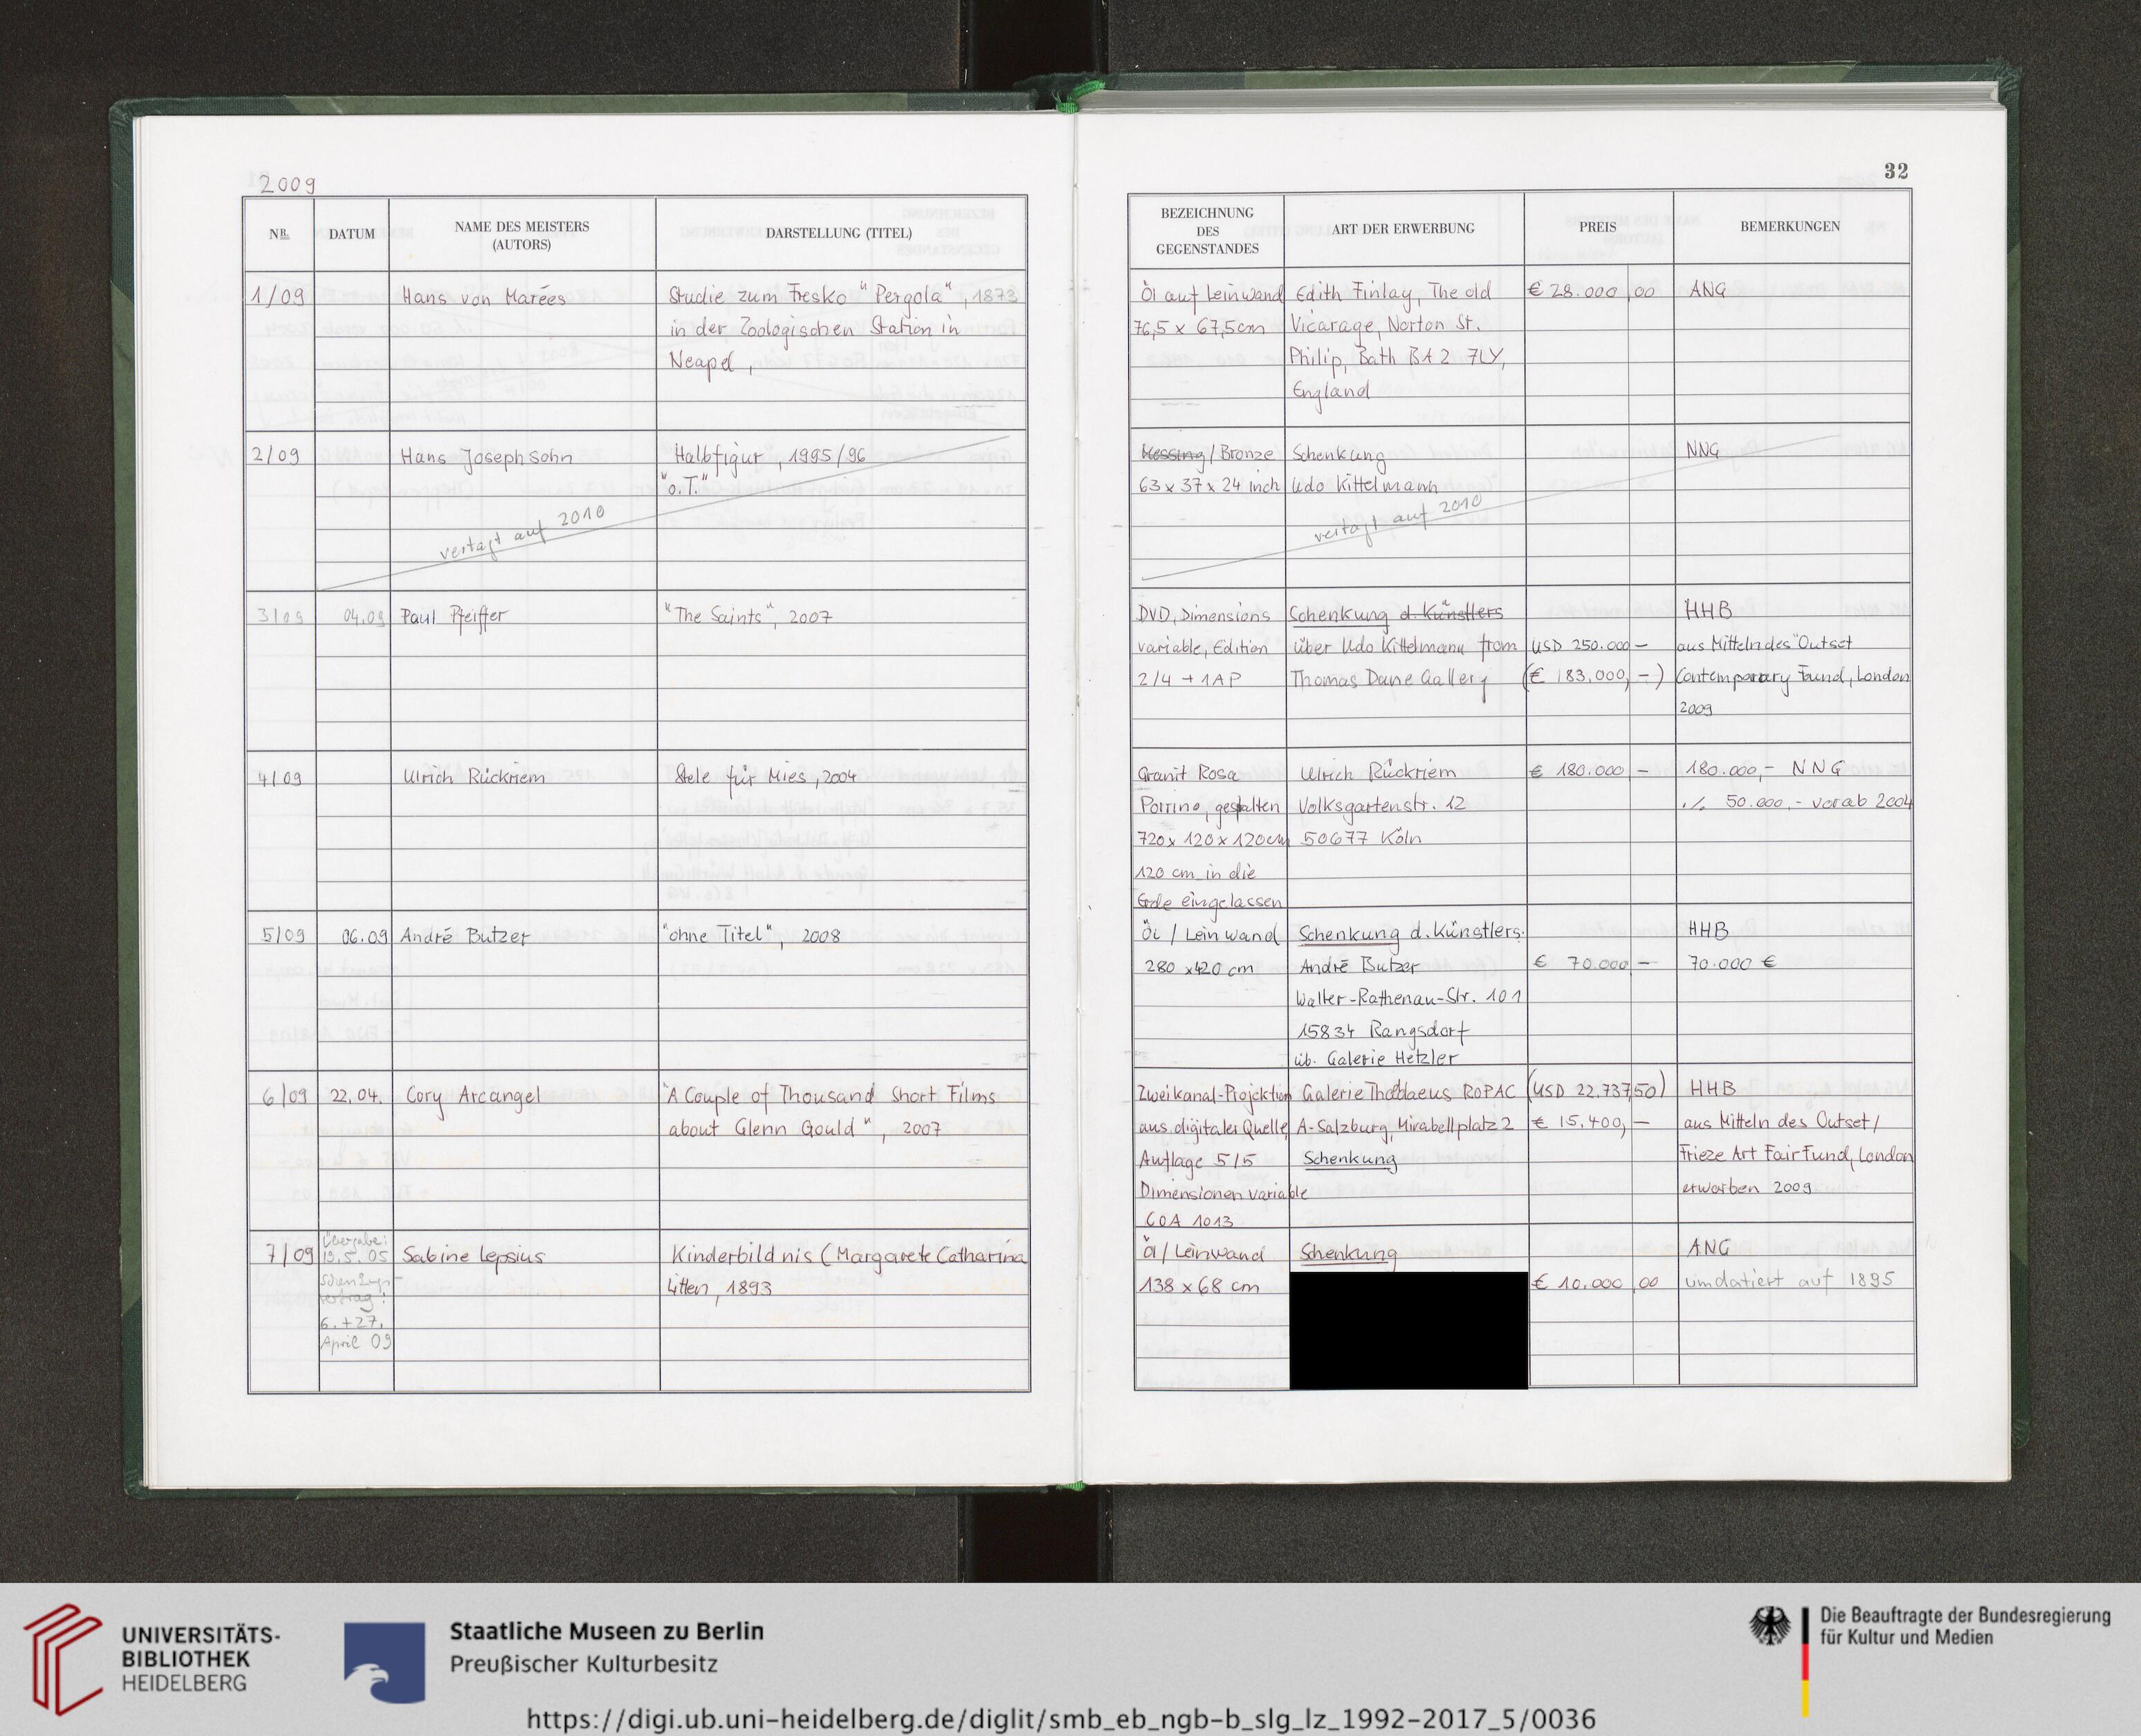 2009
NR.
DATUM
NAME DES MEISTERS
(AUTORS)
DARSTELLUNG (TITEL)
1/09
Hans von Marées
Studie zum Fresko "Pergola", 1873
in der Zoologischen Station in
Neapel,
2/09
Hans Josephsohn
Halbfigur, 1995/96
"o.T."
vertagt auf 2010
3/09
04.09
Paul Pfeiffer
"The Saints", 2007
4/09
Ulrich Rückriem
Stele für Mies, 2004
5/09
06.09
André Butzer
"ohne Titel", 2008
6/09
22.04.
Cory Arcangel
"A Couple of Thousand Short Films
about Glenn Gould", 2007
7/09
Übergabe:
19.5.05
Schenkungs-
vertrag:
6.+27.
April 09
Sabine Lepsius
Kinderbildnis (Margarete Catharina
Litten, 1893
32
BEZEICHNUNG
DES
GEGENSTANDES
ART DER ERWERBUNG
PREIS
BEMERKUNGEN
Öl auf Leinwand
76,5 x 67,5cm
Edith Finlay, The old
Vicarage, Norton St.
Philip, Bath BA2 7LY,
England
€ 28.000,00
ANG
Messing / Bronze
63 x 37 x 24 inch
Schenkung
Udo Kittelmann
vertagt auf 2010
NNG
DVD, Dimensions
variable, Edition
2/4 + 1AP
Schenkung d. Künstlers
über Udo Kittelmann from
Thomas Dane Gallery
USD 250.000 -
(€ 183.000, -)
HHB
aus Mitteln des "Outset
Contemporary Fund, London
2009
Granit Rosa
Porrino, gespalten
720 x 120 x 120cm
120 cm in die
Erde eingelassen
Ulrich Rückriem
Volksgartenstr. 12
50677 Köln
€ 180.000 -
180.000,- NNG
./. 50.000,- vorab 2004
Öl / Leinwand
280 x 420 cm
Schenkung d. Künstlers.
André Butzer
Walter-Rathenau-Str. 101
15834 Rangsdorf
üb. Galerie Hetzler
€ 70.000 -
HHB
70.000 €
Zweikanal-Projektion
aus digitaler Quelle
Auflage 5/5
Dimensionen variable
COA 1013
Galerie Thaddaeus ROPAC
A-Salzburg, Mirabellplatz 2
Schenkung
(USD 22.737,50)
€ 15.400, -
HHB
aus Mitteln des Outset/
Frieze Art Fair Fund, London
erworben 2009
Öl / Leinwand
138 x 68 cm
Schenkung
€ 10.000,00
ANG
umdatiert auf 1895
UNIVERSITÄTS-
BIBLIOTHEK
HEIDELBERG
Staatliche Museen zu Berlin
Preußischer Kulturbesitz
Die Beauftragte der Bundesregierung
für Kultur und Medien
https://digi.ub.uni-heidelberg.de/diglit/smb_eb_ngb-b_slg_lz_1992-2017_5/0036